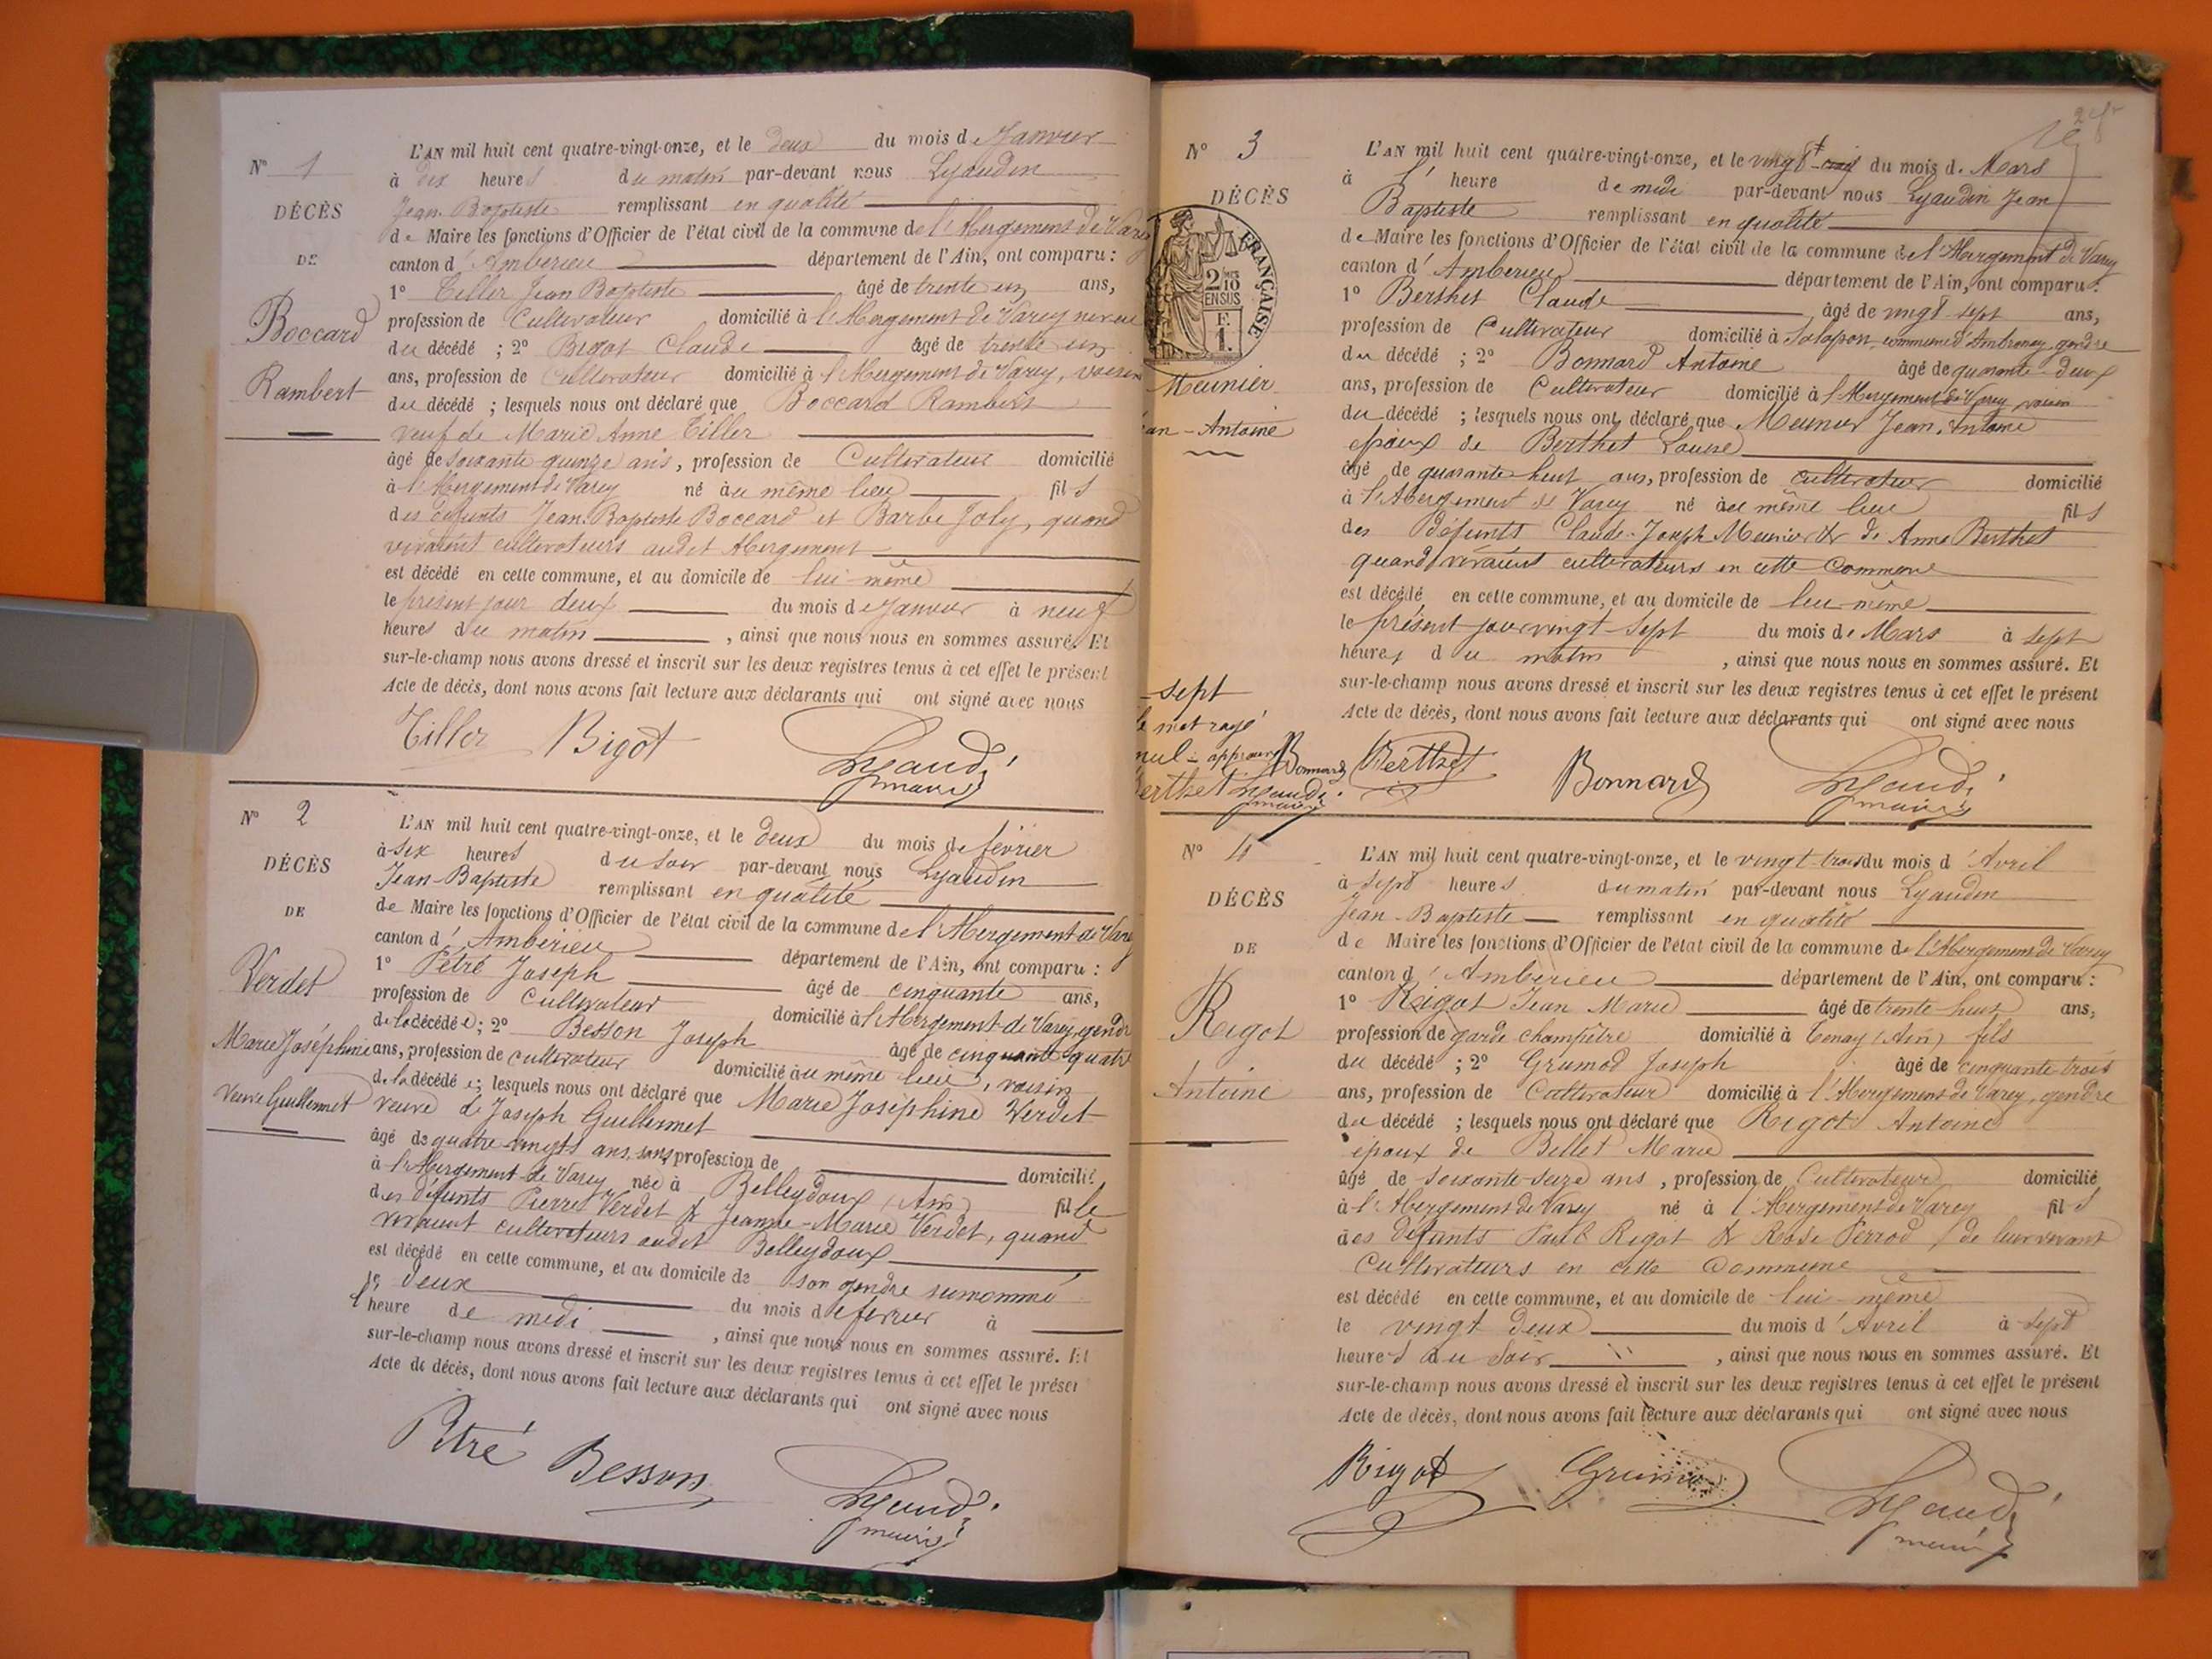 N° 1
DÉCÈS
DE
Boccard
Rambert
L'AN mil huit cent quatre-vingt-onze, et le deux du mois de Janvier
à dix heures du matin par-devant nous Lyaudin
Jean-Baptiste remplissant en qualité
de Maire les fonctions d'Officier de l'état civil de la commune de l'Abergement de Varey
canton d'Ambérieu département de l'Ain, ont comparu :
1° Tiller Jean Baptiste âgé de trente un ans,
profession de Cultivateur domicilié à l'Abergement de Varey neveu
du décédé ; 2° Bigot Claude âgé de trente un
ans, profession de Cultivateur domicilié à l'Abergement de Varey, voisin
du décédé ; lesquels nous ont déclaré que Boccard Rambert
veuf de Marie Anne Tiller
âgé de soixante quinze ans, profession de Cultivateur domicilié
à l'Abergement de Varey né au même lieu fils
des défunts Jean-Baptiste Boccard et Barbe Joly, quand
vivaient cultivateurs audit Abergement
est décédé en cette commune, et au domicile de lui-même
le présent jour deux du mois de Janvier à neuf
heures du matin , ainsi que nous nous en sommes assuré. Et
sur-le-champ nous avons dressé et inscrit sur les deux registres tenus à cet effet le présent
Acte de décès, dont nous avons fait lecture aux déclarants qui ont signé avec nous
Tiller Bigot Lyaudi
maire
N° 2
DÉCÈS
DE
Verdet
Marie Joséphine
Veuve Guillermet
L'AN mil huit cent quatre-vingt-onze, et le deux du mois de février
à six heures du soir par-devant nous Lyaudin
Jean-Baptiste remplissant en qualité
de Maire les fonctions d'Officier de l'état civil de la commune de l'Abergement de Varey
canton d'Ambérieu département de l'Ain, ont comparu :
1° Pétré Joseph âgé de cinquante ans,
profession de cultivateur domicilié à l'Abergement de Varey, gendre
de la décédée ; 2° Besson Joseph âgé de cinquante quatre
ans, profession de cultivateur domicilié au même lieu, voisin
de la décédée ; lesquels nous ont déclaré que Marie Joséphine Verdet
veuve de Joseph Guillermet
âgé de quatre-vingts ans, sans profession de domicilié
à l'Abergement de Varey née à Belleydoux (Ain) fille
des défunts Pierre Verdet & Jeanne-Marie Verdet, quand
vivaient cultivateurs audit Belleydoux
est décédé en cette commune, et au domicile de son gendre surnommé
le deux du mois de février à
1 heure de midi , ainsi que nous nous en sommes assuré. Et
sur-le-champ nous avons dressé et inscrit sur les deux registres tenus à cet effet le présen
Acte de décès, dont nous avons fait lecture aux déclarants qui ont signé avec nous
Pétré Besson Lyaudi
maire
N° 3
DÉCÈS
FRANÇAISE
2/10
EN SUS
F.
1.
Meunier
an-Antoine
-sept
le mot rayé
nul - approuvé Bonnard
Berthet Lyaudi
maire
L'AN mil huit cent quatre-vingt-onze, et le vingt du mois de Mars
à 1 heure de midi par-devant nous Lyaudin Jean
Baptiste remplissant en qualité
de Maire les fonctions d'Officier de l'état civil de la commune de l'Abergement de Varey
canton d'Ambérieu département de l'Ain, ont comparu :
1° Berthet Claude âgé de vingt sept ans,
profession de Cultivateur domicilié à Salapon, commune d'Ambronay, gendre
du décédé ; 2° Bonnard Antoine âgé de quarante-deux
ans, profession de Cultivateur domicilié à l'Abergement de Varey voisin
du décédé ; lesquels nous ont déclaré que Meunier Jean-Antoine
époux de Berthet Louise
âgé de quarante huit ans, profession de cultivateur domicilié
à l'Abergement de Varey né au même lieu fils
des Défunts Claude-Joseph Meunier & de Anne Berthet
quand vivaient cultivateurs en cette Commune
est décédé en cette commune, et au domicile de lui-même
le présent jour vingt-sept du mois de Mars à sept
heures du matin , ainsi que nous nous en sommes assuré. Et
sur-le-champ nous avons dressé et inscrit sur les deux registres tenus à cet effet le présent
Acte de décès, dont nous avons fait lecture aux déclarants qui ont signé avec nous
Berthet Bonnard Lyaudi
maire
N° 4
DÉCÈS
DE
Rigot
Antoine
L'AN mil huit cent quatre-vingt-onze, et le vingt-trois du mois d'Avril
à sept heures du matin par-devant nous Lyaudin
Jean-Baptiste remplissant en qualité
de Maire les fonctions d'Officier de l'état civil de la commune de l'Abergement de Varey
canton d'Ambérieu département de l'Ain, ont comparu :
1° Rigot Jean Marie âgé de trente-huit ans,
profession de garde champêtre domicilié à Tenay (Ain) fils
du décédé ; 2° Grumod Joseph âgé de cinquante-trois
ans, profession de Cultivateur domicilié à l'Abergement de Varey, gendre
du décédé ; lesquels nous ont déclaré que Rigot Antoine
époux de Bellet Marie
âgé de soixante-seize ans, profession de Cultivateur domicilié
à l'Abergement de Varey né à l'Abergement de Varey fils
des défunts Paul Rigot & Rose Perrod, de leur vivant
Cultivateurs en cette Commune
est décédé en cette commune, et au domicile de lui-même
le vingt deux du mois d'Avril à sept
heures du soir , ainsi que nous nous en sommes assuré. Et
sur-le-champ nous avons dressé et inscrit sur les deux registres tenus à cet effet le présent
Acte de décès, dont nous avons fait lecture aux déclarants qui ont signé avec nous
Rigot Grumod Lyaudi
maire